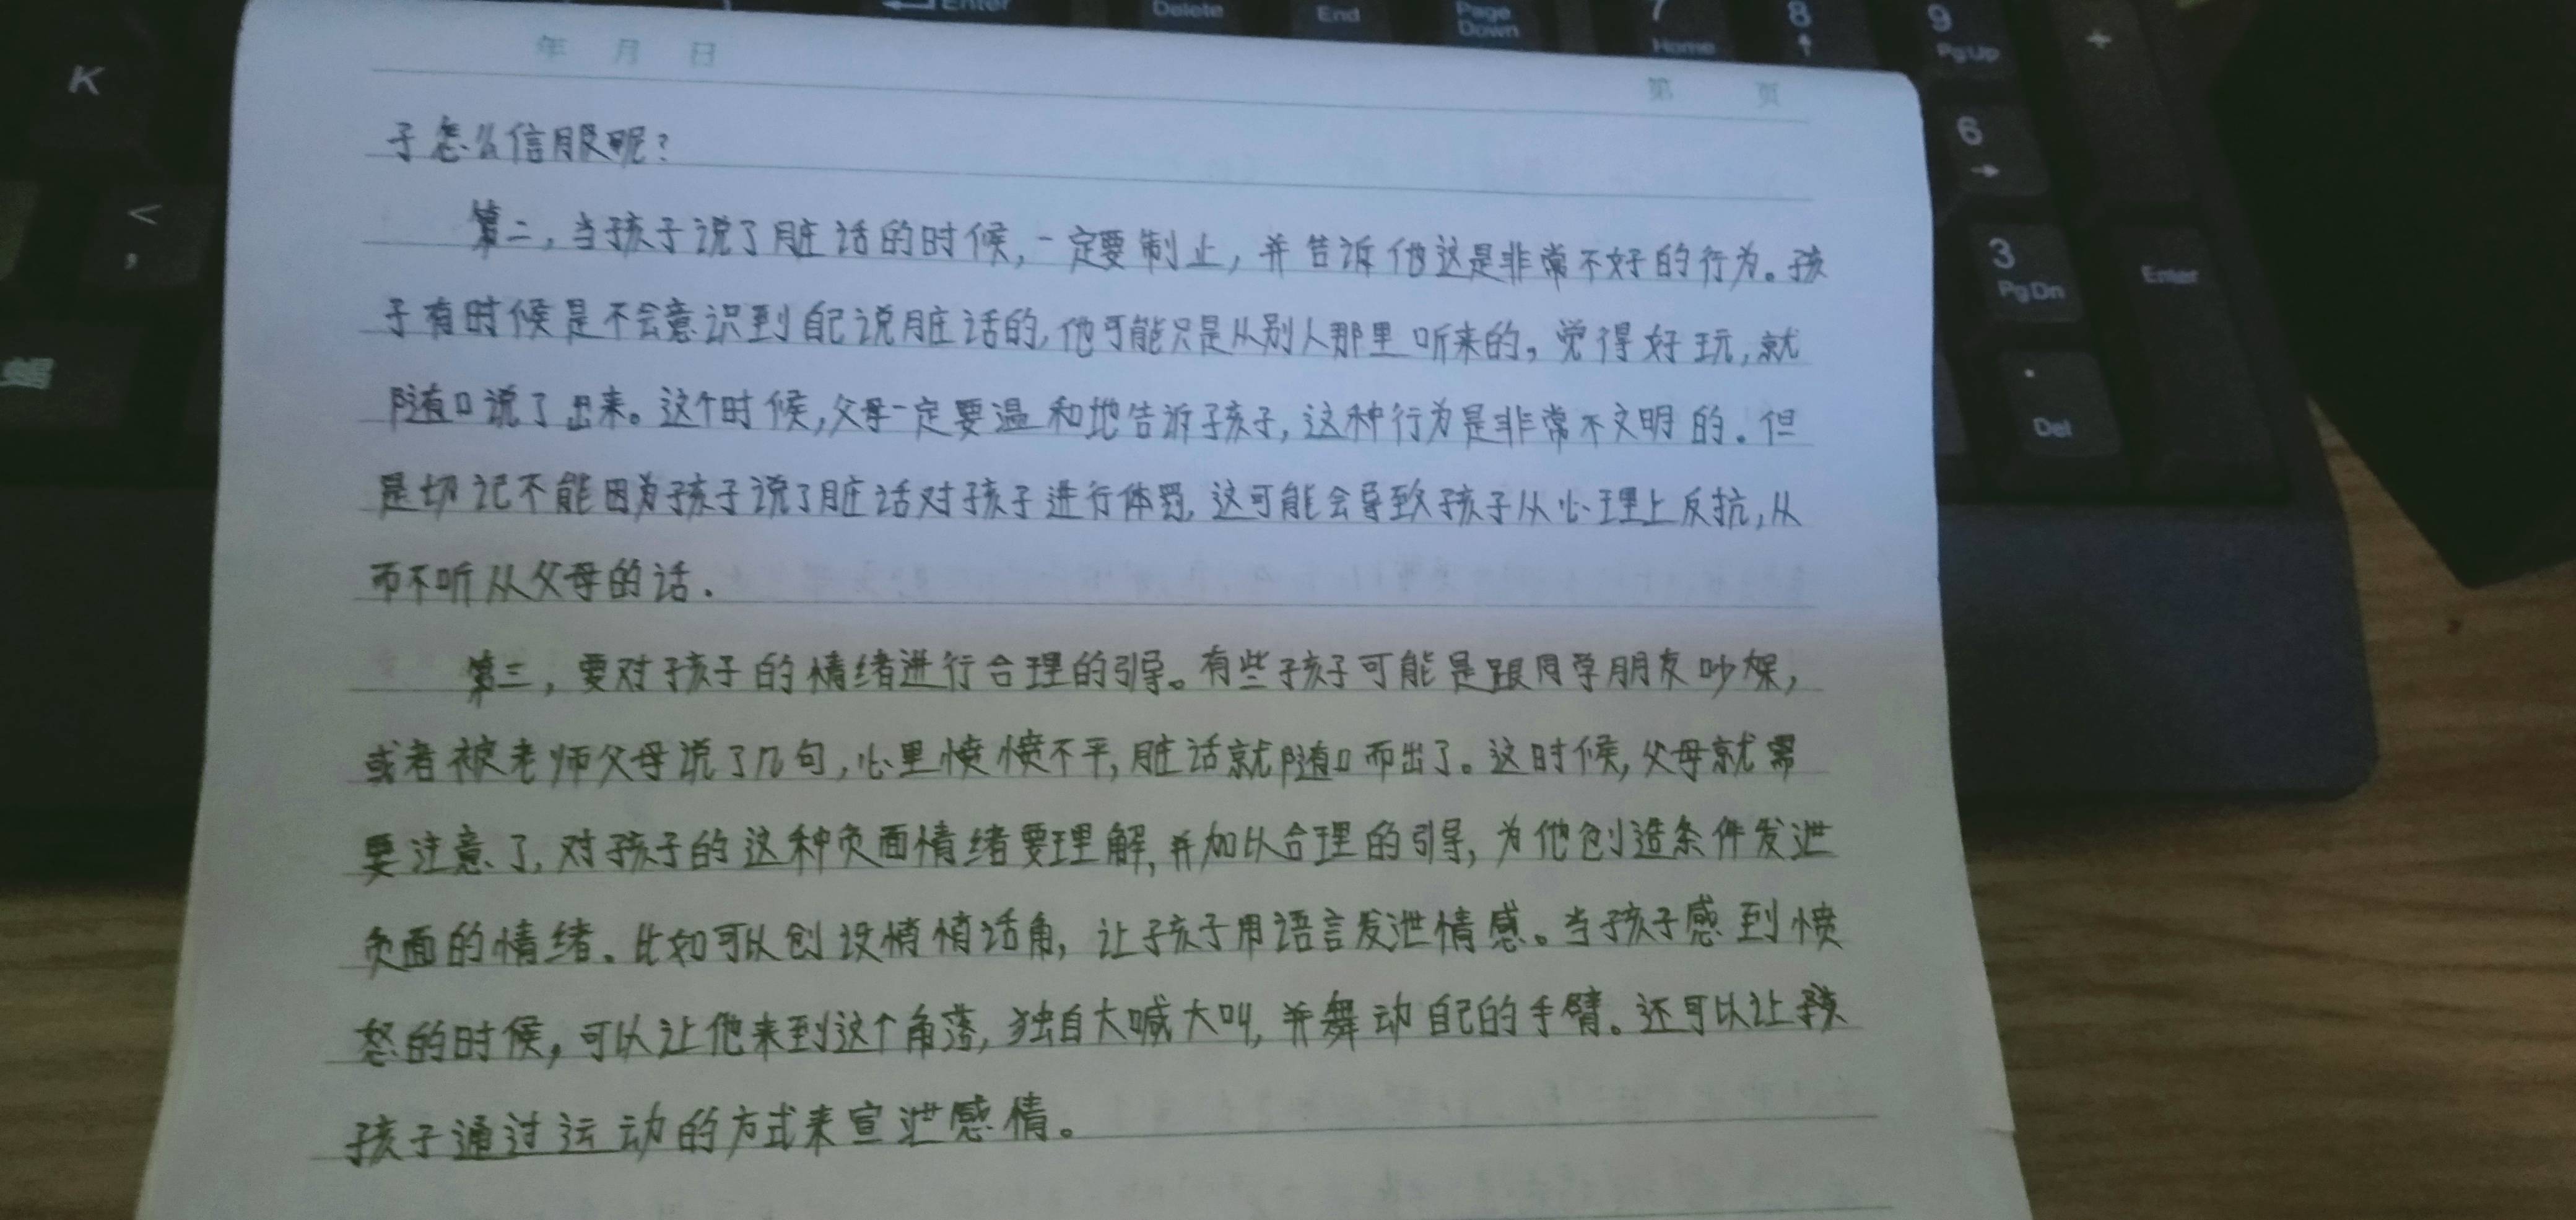 Enter
Delete
End
Page Down
7 Home
8
9 PgUp
+
K
年 月 日
第 页
6
子怎么信服呢?
<
,
第二,当孩子说了脏话的时候,一定要制止,并告诉他这是非常不好的行为。孩
3
PgDn
Enter
子有时候是不会意识到自己说脏话的,他可能只是从别人那里听来的,觉得好玩,就
随口说了出来。这个时候,父母一定要温和地告诉孩子,这种行为是非常不文明的.但
.
Del
是切记不能因为孩子说了脏话对孩子进行体罚,这可能会导致孩子从心理上反抗,从
而不听从父母的话.
第三,要对孩子的情绪进行合理的引导。有些孩子可能是跟同学朋友吵架,
或者被老师父母说了几句,心里愤愤不平,脏话就随口而出了。这时候,父母就需
要注意了,对孩子的这种负面情绪要理解,并加以合理的引导,为他创造条件发泄
负面的情绪.比如可以创设悄悄话角,让孩子用语言发泄情感。当孩子感到愤
怒的时候,可以让他来到这个角落,独自大喊大叫,并舞动自己的手臂。还可以让孩
孩子通过运动的方式来宣泄感情。